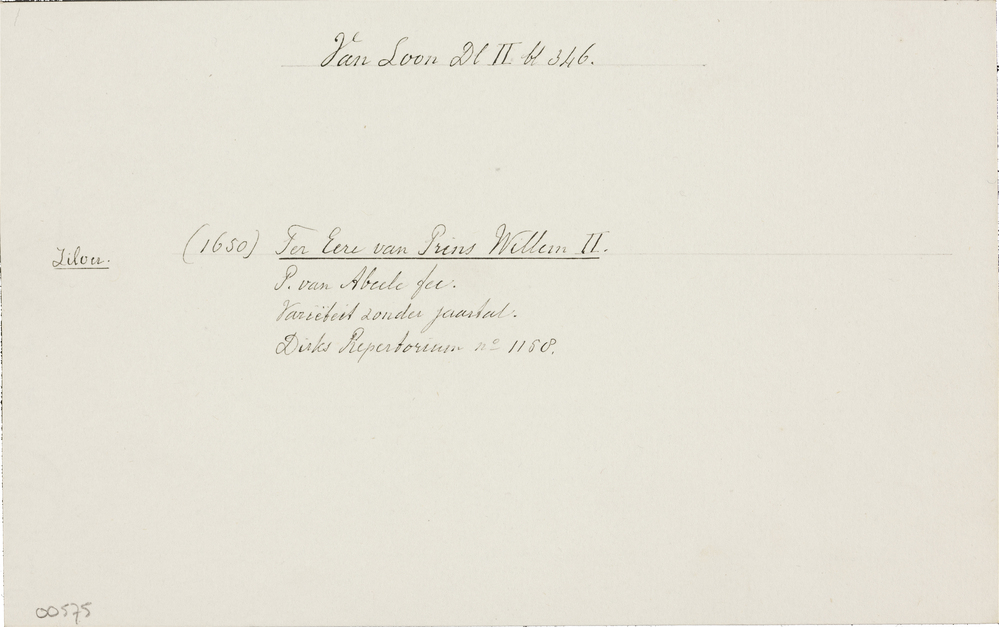 Van Loon Dl II bl 346.
Zilver. (1650) Ter Eere van Prins Willem II.
P. van Abeele fec.
Variëteit zonder jaartal.
Dirks Repertorium no 1168.
00575